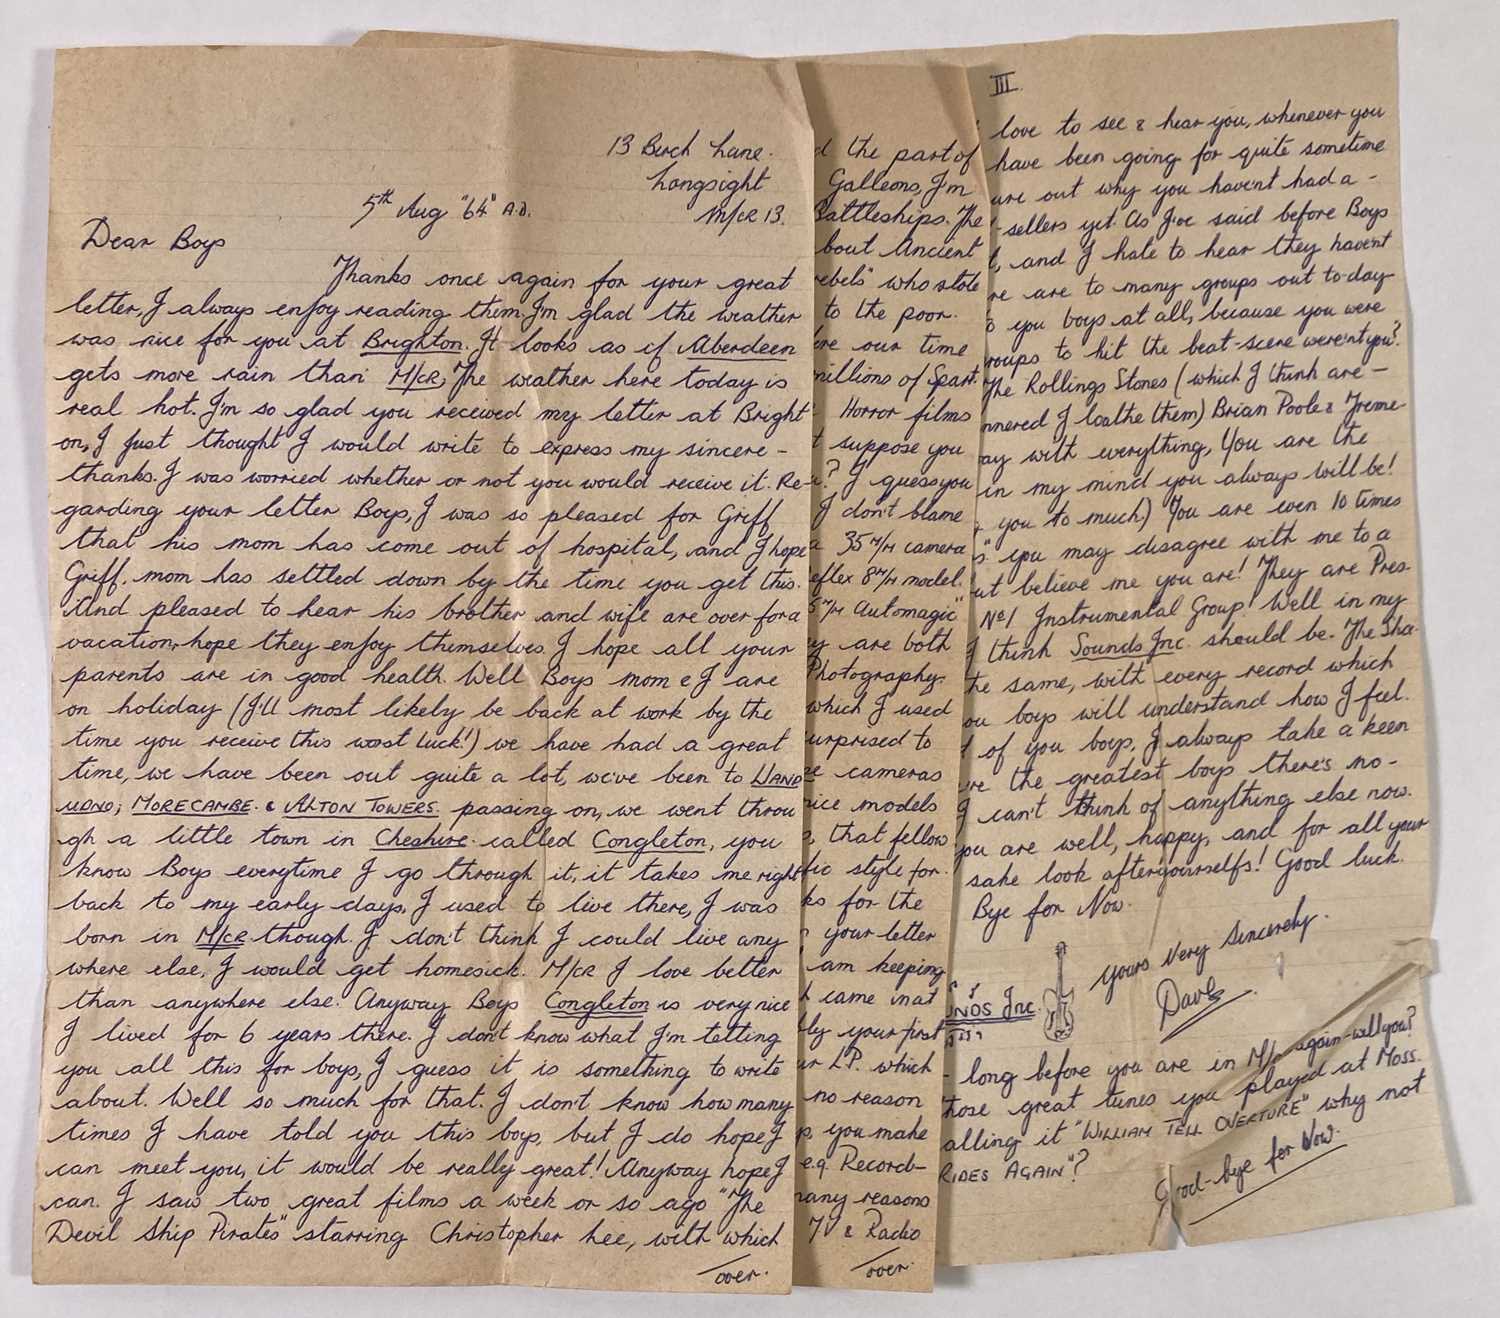 13 Birch Lane.
Longsight
5th Aug "64" A.D.
M/CR 13.
Dear Boys
Thanks once again for your great
letter, I always enjoy reading them. I'm glad the weather
was nice for you at Brighton. It looks as if Aberdeen
gets more rain than M/CR, The weather here today is
real hot. I'm so glad you received my letter at Bright
on, I just thought I would write to express my sincere -
thanks. I was worried whether or not you would receive it. Re-
garding your letter Boys, I was so pleased for Griff
that his mom has come out of hospital, and I hope
Griff. mom has settled down by the time you get this.
And pleased to hear his brother and wife are over for a
vacation, hope they enjoy themselves. I hope all your
parents are in good health. Well Boys mom & I are
on holiday (I'll most likely be back at work by the
time you receive this worst luck!) we have had a great
time, we have been out quite a lot, we've been to LLAND
UDNO; MORECAMBE. & ALTON TOWERS. passing on, we went throu
gh a little town in Cheshire called Congleton, you
know Boys everytime I go through it, it takes me right
back to my early days, I used to live there, I was
born in M/CR though. I don't think I could live any
where else, I would get homesick. M/CR I love better
than anywhere else. Anyway Boys Congleton is very nice
I lived for 6 years there. I don't know what I'm telling
you all this for boys, I guess it is something to write
about. Well so much for that. I don't know how many
times I have told you this boys, but I do hope I
can meet you, it would be really great! Anyway hope I
can. I saw two great films a week or so ago "The
Devil Ship Pirates" starring Christopher Lee, with which
over.
d the part of
Galleons, I'm
Battleships. The
bout Ancient
rebels" who stole
to the poor.
re our time
millions of Spart.
Horror films
t suppose you
? I guess you
I don't blame
a 35 M/M camera
eflex 8 M/M model.
5 M/M Automagic"
ey are both
Photography.
which I used
urprised to
se cameras
nice models
, that fellow
tic style for.
ks for the
your letter
am keeping
h came in at
bly your first
ur LP. which
no reason
p, you make
e.g. Record-
many reasons
TV & Radio
over.
III.
love to see & hear you, whenever you
have been going for quite sometime
ure out why you havent had a -
-sellers yet. As I've said before Boys
t, and I hate to hear they havent
re are to many groups out to-day
o you boys at all, because you were
roups to hit the beat-scene weren't you?
The Rollings Stones (which I think are -
nnered I loathe them) Brian Poole & Treme-
ay with everything, You are the
in my mind you always will be!
you to much) You are even 10 times
s" you may disagree with me to a
ut believe me you are! They are Pres-
No1 Instrumental Group! Well in my
I think Sounds Inc. should be. The Sha-
the same, with every record which
ou boys will understand how I feel.
d of you boys, I always take a keen
re the greatest boys there's no-
I can't think of anything else now.
you are well, happy, and for all your
sake look after yourselfs! Good luck.
Bye for Now.
yours Very Sincerely.
Dave
UNDS Inc.
- long before you are in M/CR again-will you?
hose great tunes you played at Moss.
alling it "WILLIAM TELL OVERTURE" why not
RIDES AGAIN"?
Good-bye for Now.